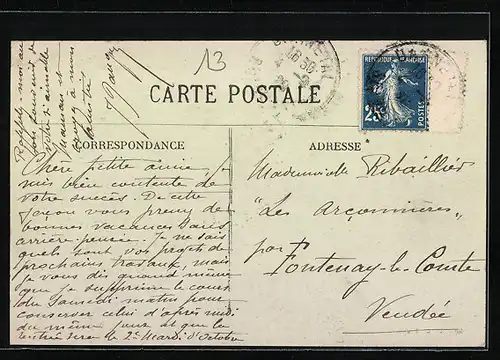 13
CARTE POSTALE
CORRESPONDANCE
ADRESSE
RÉPUBLIQUE FRANÇAISE
25c
POSTES
Chère petite amie, je
suis bien contente de
votre succès. De cette
façon vous prenez de
bonnes vacances sans
arrière pensée. Je ne sais
quels sont vos projets de
prochains travaux, mais
je vous dis quand même
que je supprime le cours
du Samedi matin pour
conserver celui d'après midi
du même jour et que la
rentrée sera le 2e Mardi d'Octobre
Mademoiselle Ribaillier
"Les Arçonnières"
par
Fontenay-le-Comte
Vendée